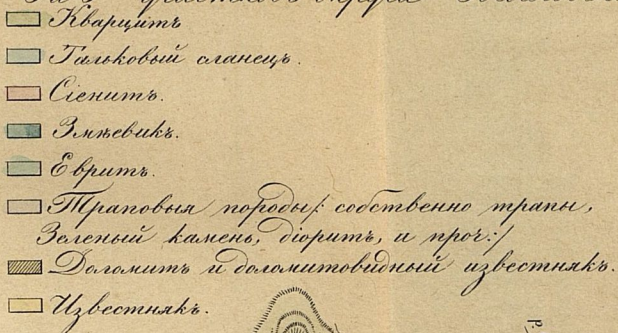 Кварцитъ
Тальковый сланецъ.
Сіенитъ.
Змѣевикъ.
Евритъ.
Траповыя породы /: собственно трапы,
Зеленый камень, діоритъ, и проч: /
Доломитъ и доломитовидный известнякъ.
Известнякъ.